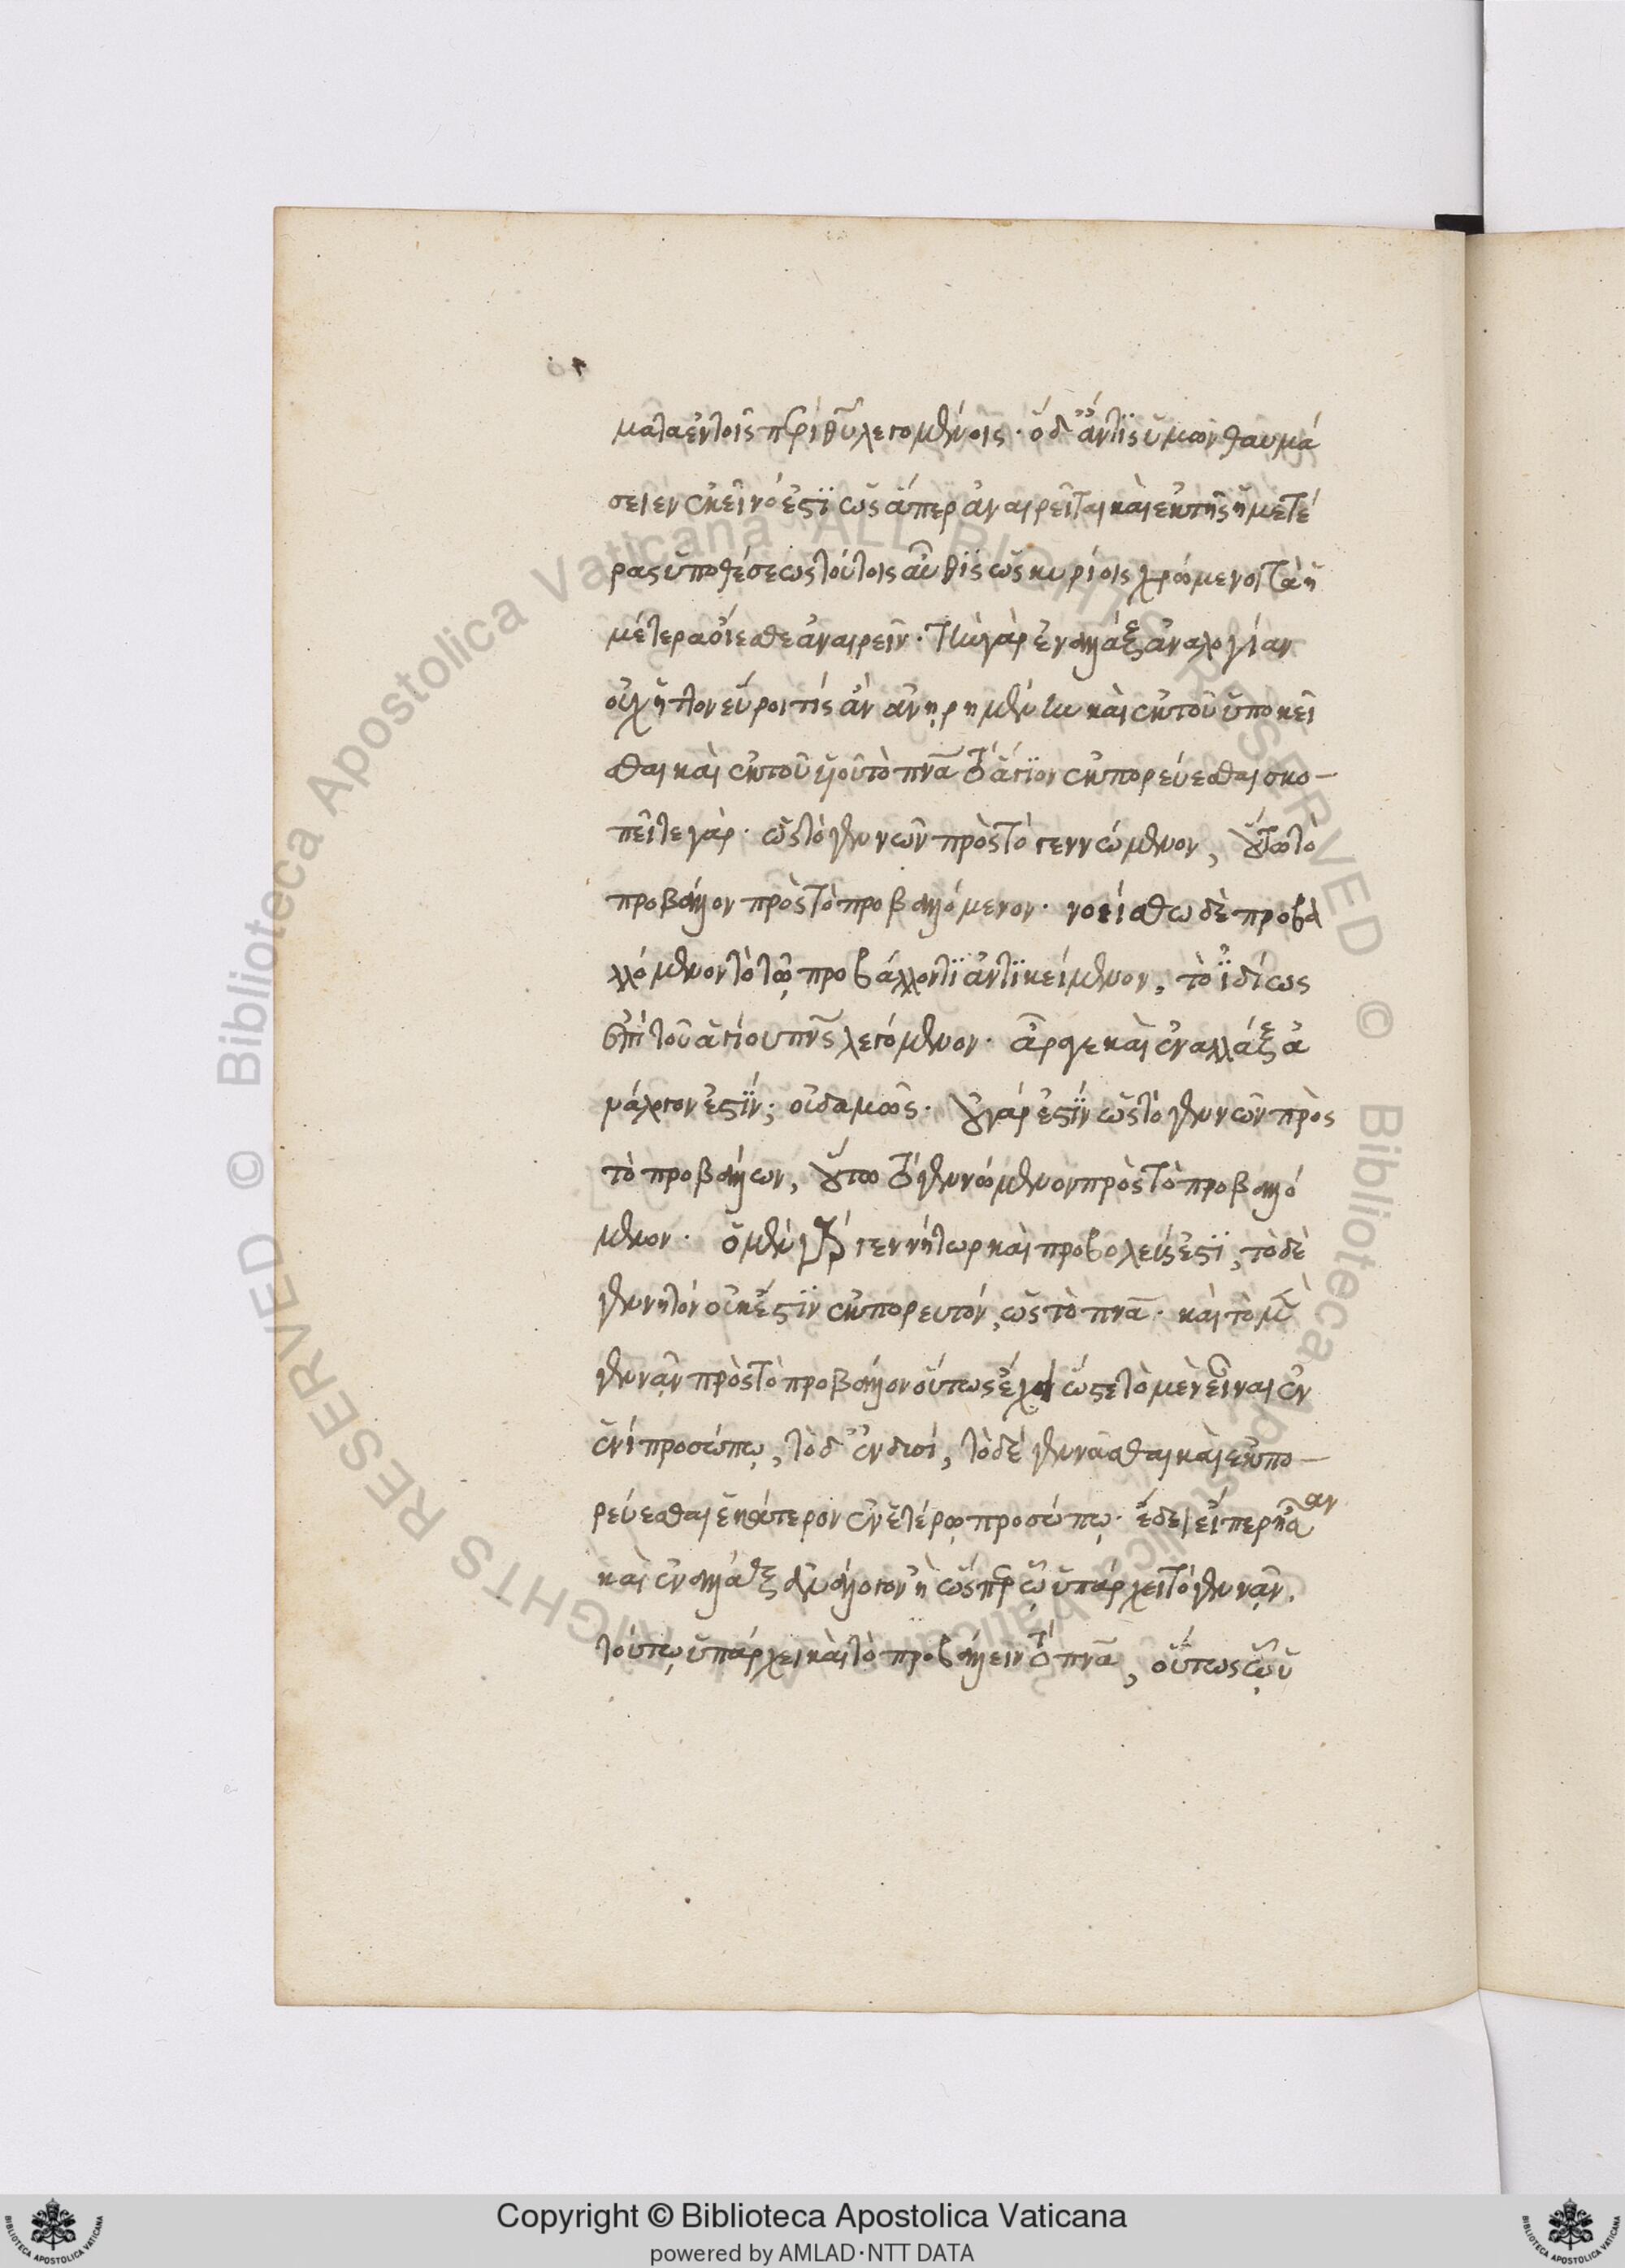 ματα ἐν τοῖς περὶ θῦ λεγομένοις · ὃ δ' ἄν τις ὑμῶν θαυμά
σειεν ἐκεῖνό ἐστι ὡς ἅπερ ἀναιρεῖται καὶ ἐκ τῆς ἡμετέ
ρας ὑποθέσεως τούτοις αὖθις ὡς κυρίοις χρώμενοι τὰ ἡ
μέτερα οἴεσθε ἀναιρεῖν · τὴν γὰρ ἐναλλὰξ ἀναλογίαν
οὐχ ἧττον εὕροι τίς ἂν ἀνῃρημένην καὶ ἐκ τοῦ ὑποκεῖ
σθαι καὶ ἐκ τοῦ υἱοῦ τὸ πνᾶ τὸ ἅγιον ἐκπορεύεσθαι σκο–
πεῖτε γάρ · ὡς τὸ γεννῶν πρὸς τὸ γεννώμενον, οὕτω τὸ
προβάλλον πρὸς τὸ προβαλλόμενον · νοείσθω δὲ προβα
λλόμενον τὸ τῷ προβάλλοντι ἀντικείμενον, τὸ ἰδίως
ἐπὶ τοῦ ἁγίου πνς λεγόμενον · ἆρά γε καὶ ἐναλλὰξ ἀ
νάλογον ἐστίν; οὐδαμῶς · οὐ γάρ ἐστιν ὡς τὸ γεννῶν πρὸς
τὸ προβάλλων, οὕτω τὸ γεννώμενον πρὸς τὸ προβαλλό
μενον · ὁ μὲν γὰρ γεννήτωρ καὶ προβολεύς ἐστι, τὸ δὲ
γεννητὸν οὐκ ἔστιν ἐκπορευτόν, ὡς τὸ πνᾶ · καὶ τὸ μὲν
γεννᾷν πρὸς τὸ προβάλλον οὕτως ἔχει ὥστε τὸ μὲν εἶναι ἐν
ἑνὶ προσώπῳ, τὸ δ' ἐν δυσί, τὸ δὲ γεννᾶσθαι καὶ ἐκπο–
ρεύεσθαι ἑκάτερον ἐν ἑτέρῳ προσώπῳ · ἔδει εἴπερ ἦσαν
καὶ ἐναλλὰξ ἀνάλογον ἢ ὥσπερ ᾧ ὑπάρχει τὸ γεννᾷν,
τούτῳ ὑπάρχει καὶ τὸ προβάλλειν τὸ πνᾶ, οὕτως ᾧ ὑ